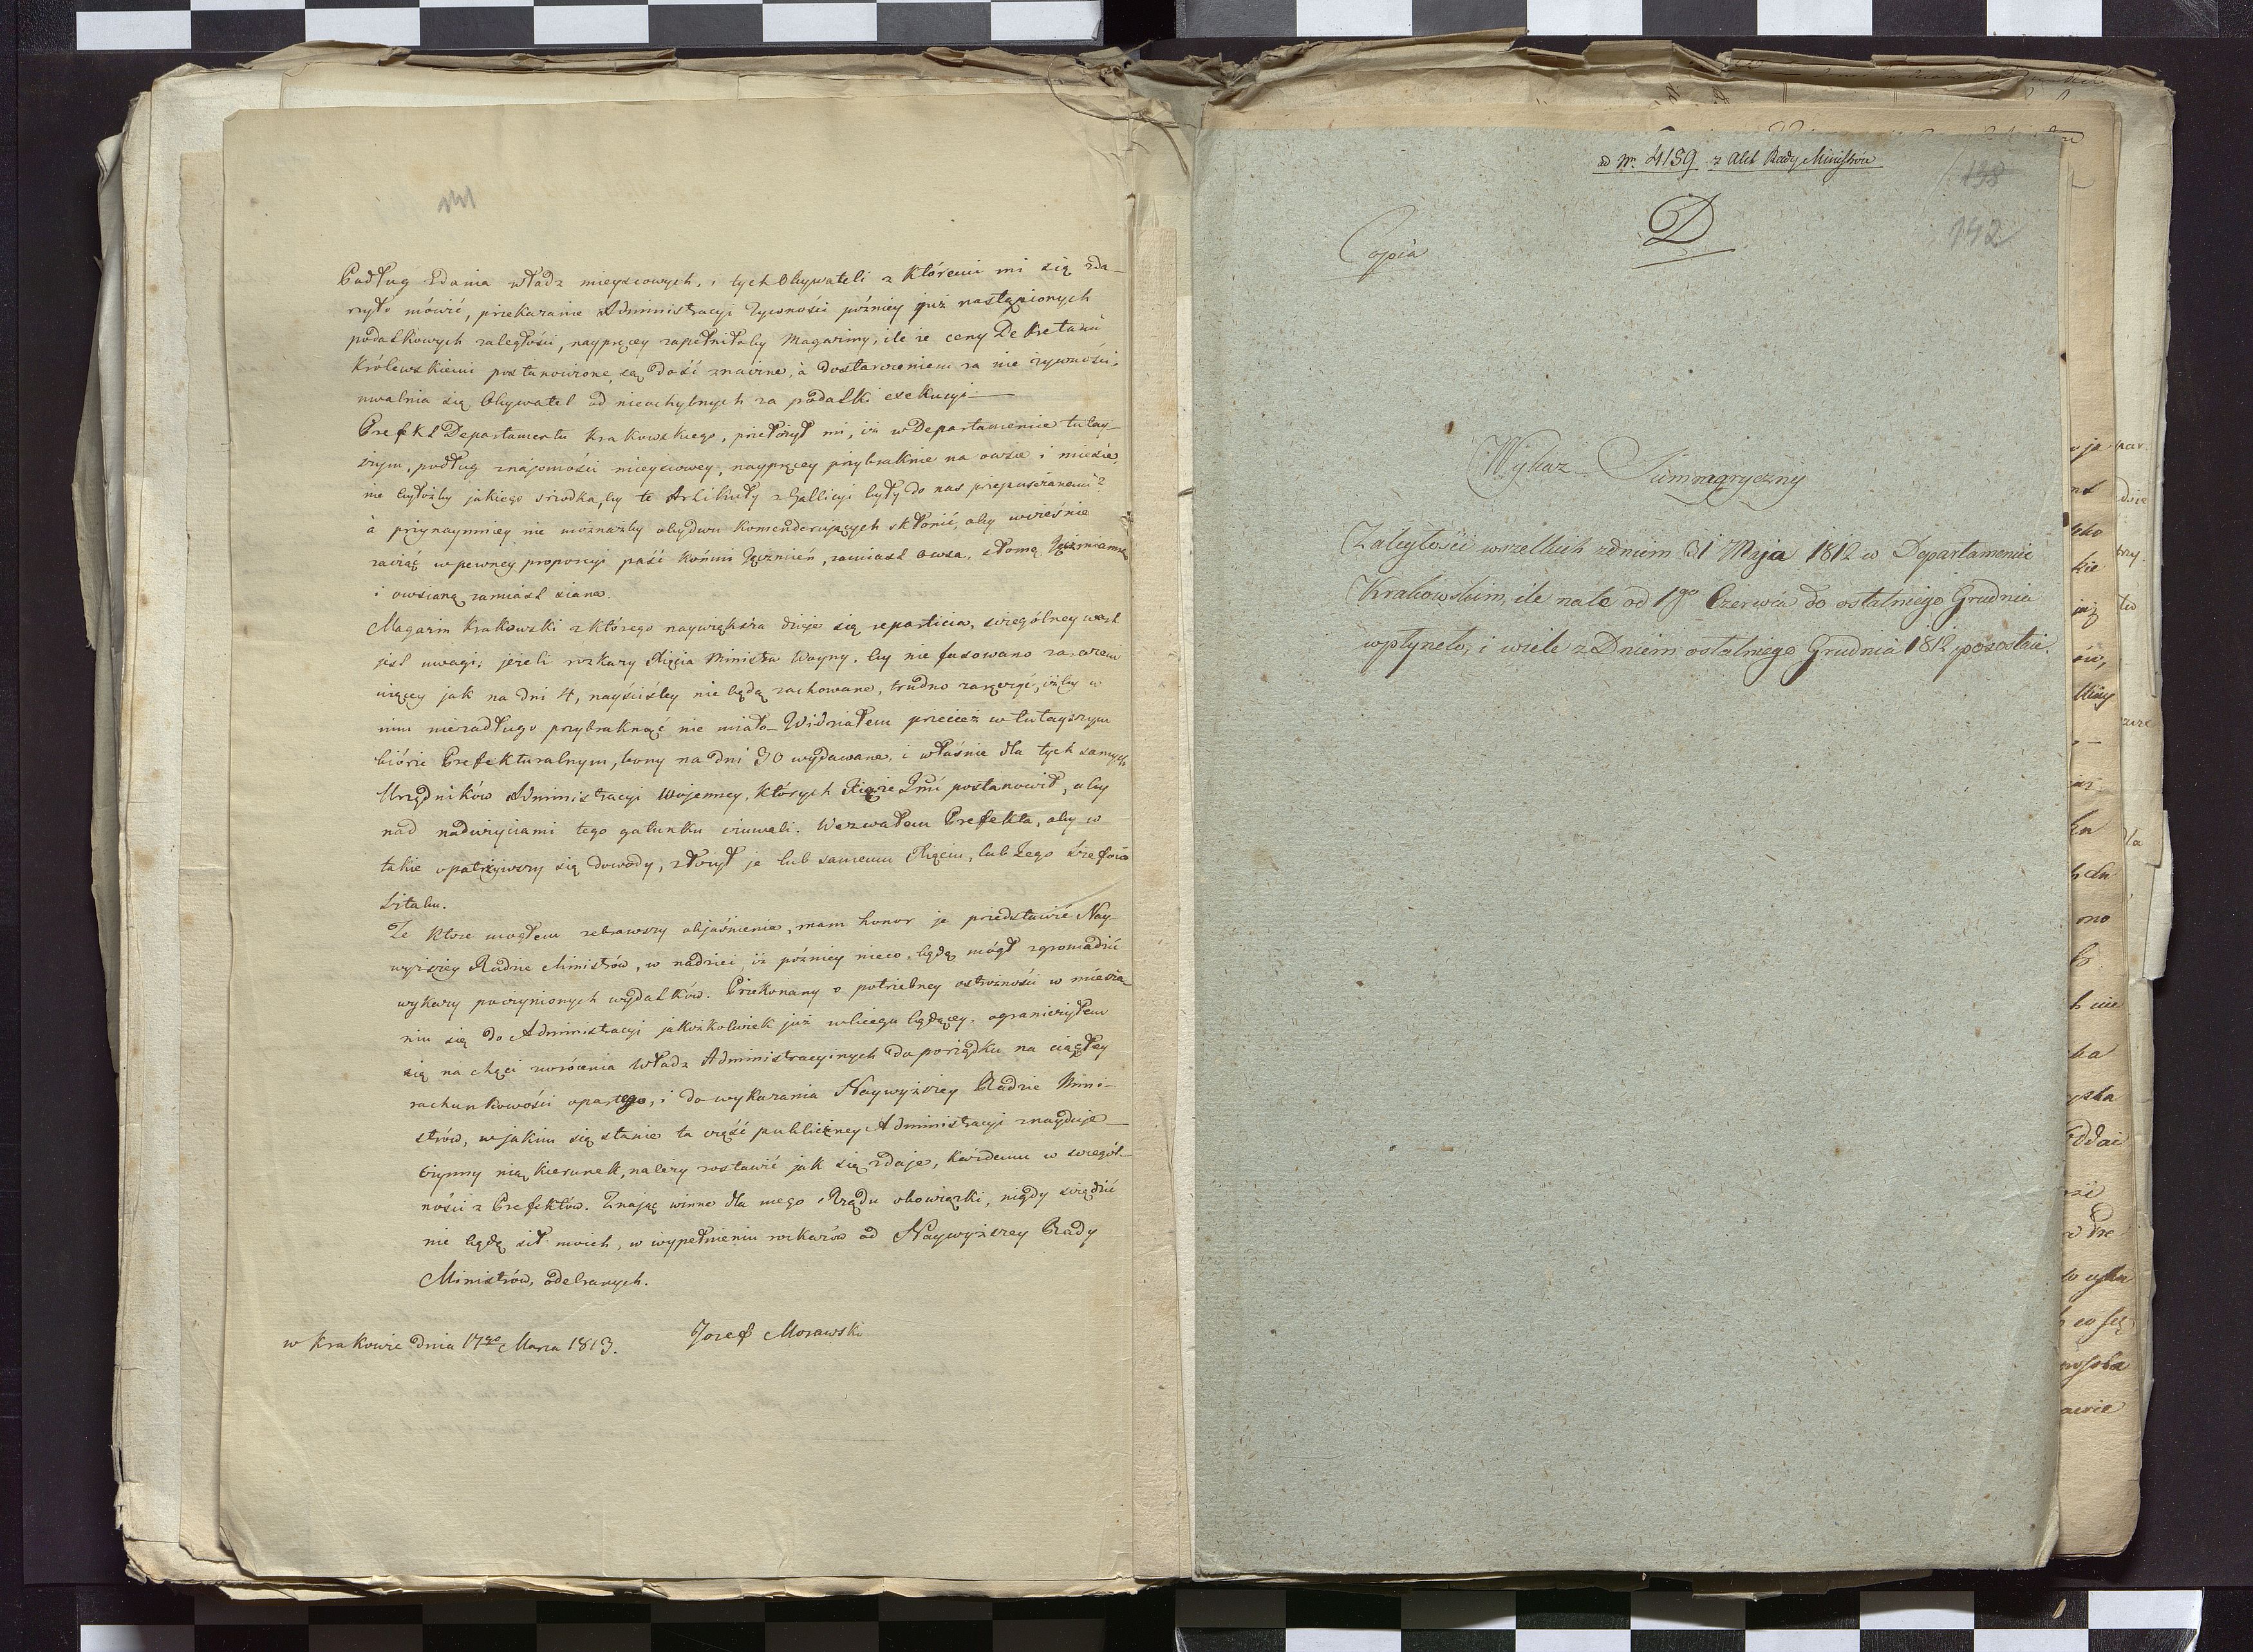 Podług Zdania władz mieyscowych, i tych Obywateli z któremi mi się zda-
rzyło mówić, przekazanie Administracyi Żywności późniey już nastąpionych
podatkowych zaległości, nayprędzey zapełniłoby Magazyny, ile że ceny Dekretami
Królewskiemi postanowione, są dość znaczne, à dostarczeniem za nie żywności,
uwalnia się Obywatel od nieochybnych za podatki exekucyi—
Prefekt Departamentu Krakowskiego, przełożył mi, iż w Departamencie tutay-
szym, podług znajomości mieyscowey, nayprędzey przybraknie na owsie i mięsie,
nie byłożby jakiego srzodka, by te Artikuły z Gallicyi były do nas przepuszczanemi?
à przynaymniey nie możnażby obydwu Komenderujących skłonić, aby wcześnie
zacząć w pewney proporcyi paść końmi Jęczmień, zamiast owsa, słomą Jęczmianną
i owsianą zamiast siana.
Magazin Krakowski z którego naywiększa dzieje się reparticia, szczególney wart
jest uwagi; jeżeli rozkazy Xięcia Ministra Woyny, by nie fasowano zarazem
więcey jak na dni 4, nayściśley nie będą zachowane, trudno zaręczyć, iżby w
nim niezadługo przybraknąć nie miało_ Widziałem przecież w tutayszym
biórze Prefekturalnym, bony na dni 30 wydawane, i właśnie dla tych samych
Urzędników Administracyi Wojenney, których Xiąże Jmć postanowił, aby
nad nadużyciami tego gatunku czuwali. Wezwałem Prefekta, aby w
takie opatrzywszy się dowody, złożył je lub samemu Xięciu, lub Jego Szefowi
Sztabu.
Te które mogłem zebrawszy objaśnienia, mam honor je przedstawić Nay-
wyższey Radzie Ministrów, w nadziei, iż późniey nieco, będę mógł zgromadzić
wykazy poczynionych wydatków. Przekonany o potrzebney ostrożności w miesza-
niu się do Administracyi jakożkolwiek już w biegu będącey, ograniczyłem
się na chęci zwrócenia Władz Administracyinych do porządku na ciągłey
rachunkowości opartego, i do wykazania Naywyższey Radzie Mini-
strów, w jakim się stanie ta część publiczney Administracyi znayduje—
Czynny nią kierunek, należy zostawić jak się zdaje, każdemu w szczegól-
ności z Prefektów. Znając winne dla mego Rządu obowiązki, nigdy szczędzić
nie będę sił moich, w wypełnieniu rozkazów od Naywyższey Rady
Ministrów, odebranych.
w Krakowie dnia 17go Marca 1813. Jozef Morawski
ad Nr. 4159 z Akt Rady Ministrów
138
D
Copia
142
Wykaz Summaryczny
Zaległości wszelkich z dniem 31 Maja 1812 w Departamencie
Krakowskim, ile na te od 1go Czerwca do ostatniego Grudnia
wpłyneło, i wiele z Dniem ostatniego Grudnia 1812 pozostaie.